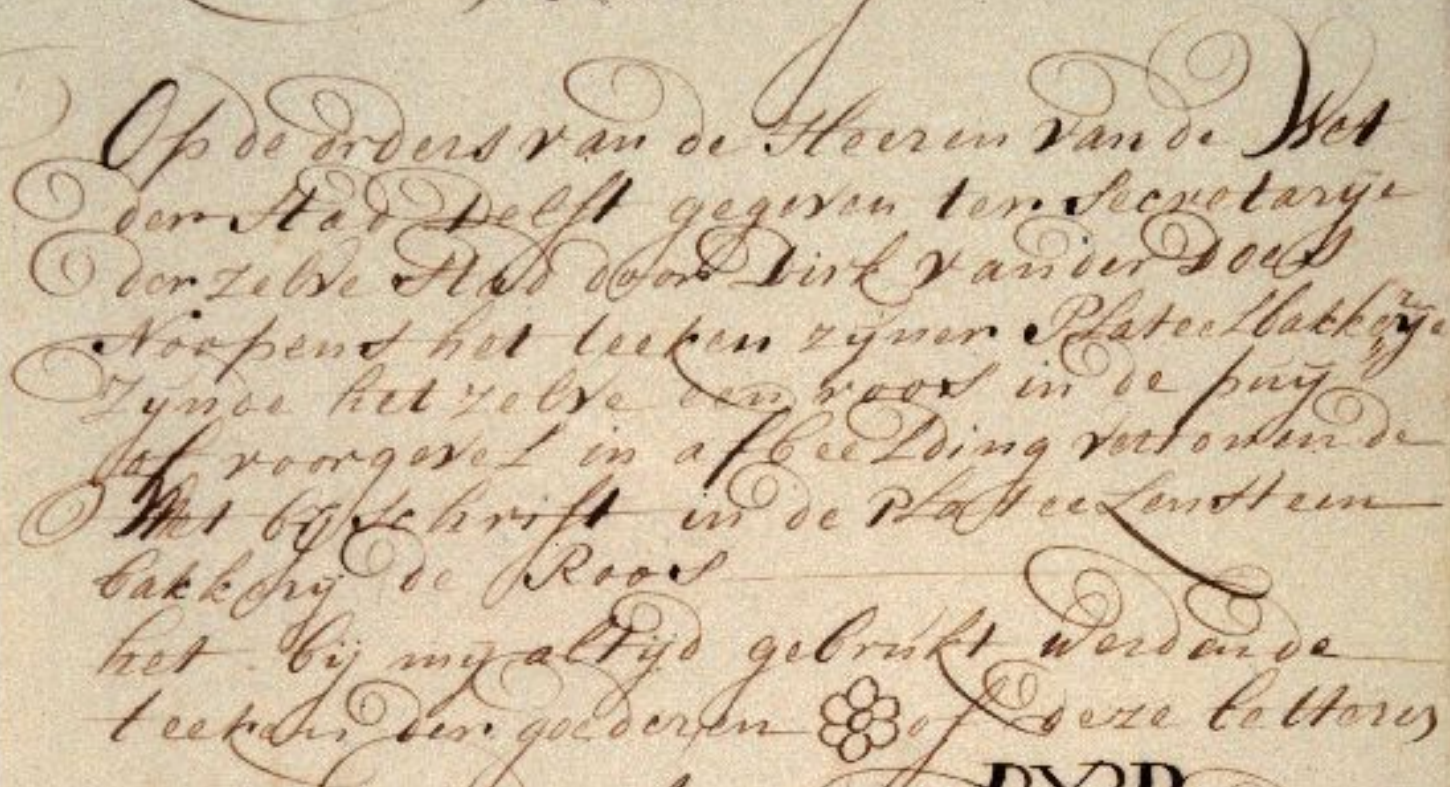 Op de orders van de Heeren van de Wet
der Stad Delft gegeven ter Secretarije
der zelve Stad door Dirk van der Does
Noopens het teeken zijner Plateelbakkerije
Zijnde het zelve een roos in de puij
of voorgevel in afbeelding vertonende
Met bijschrift in de Plateelensteen
bakkerij de Roos
het bij mij altijd gebruikt werdende
teeken der goederen of deze letters